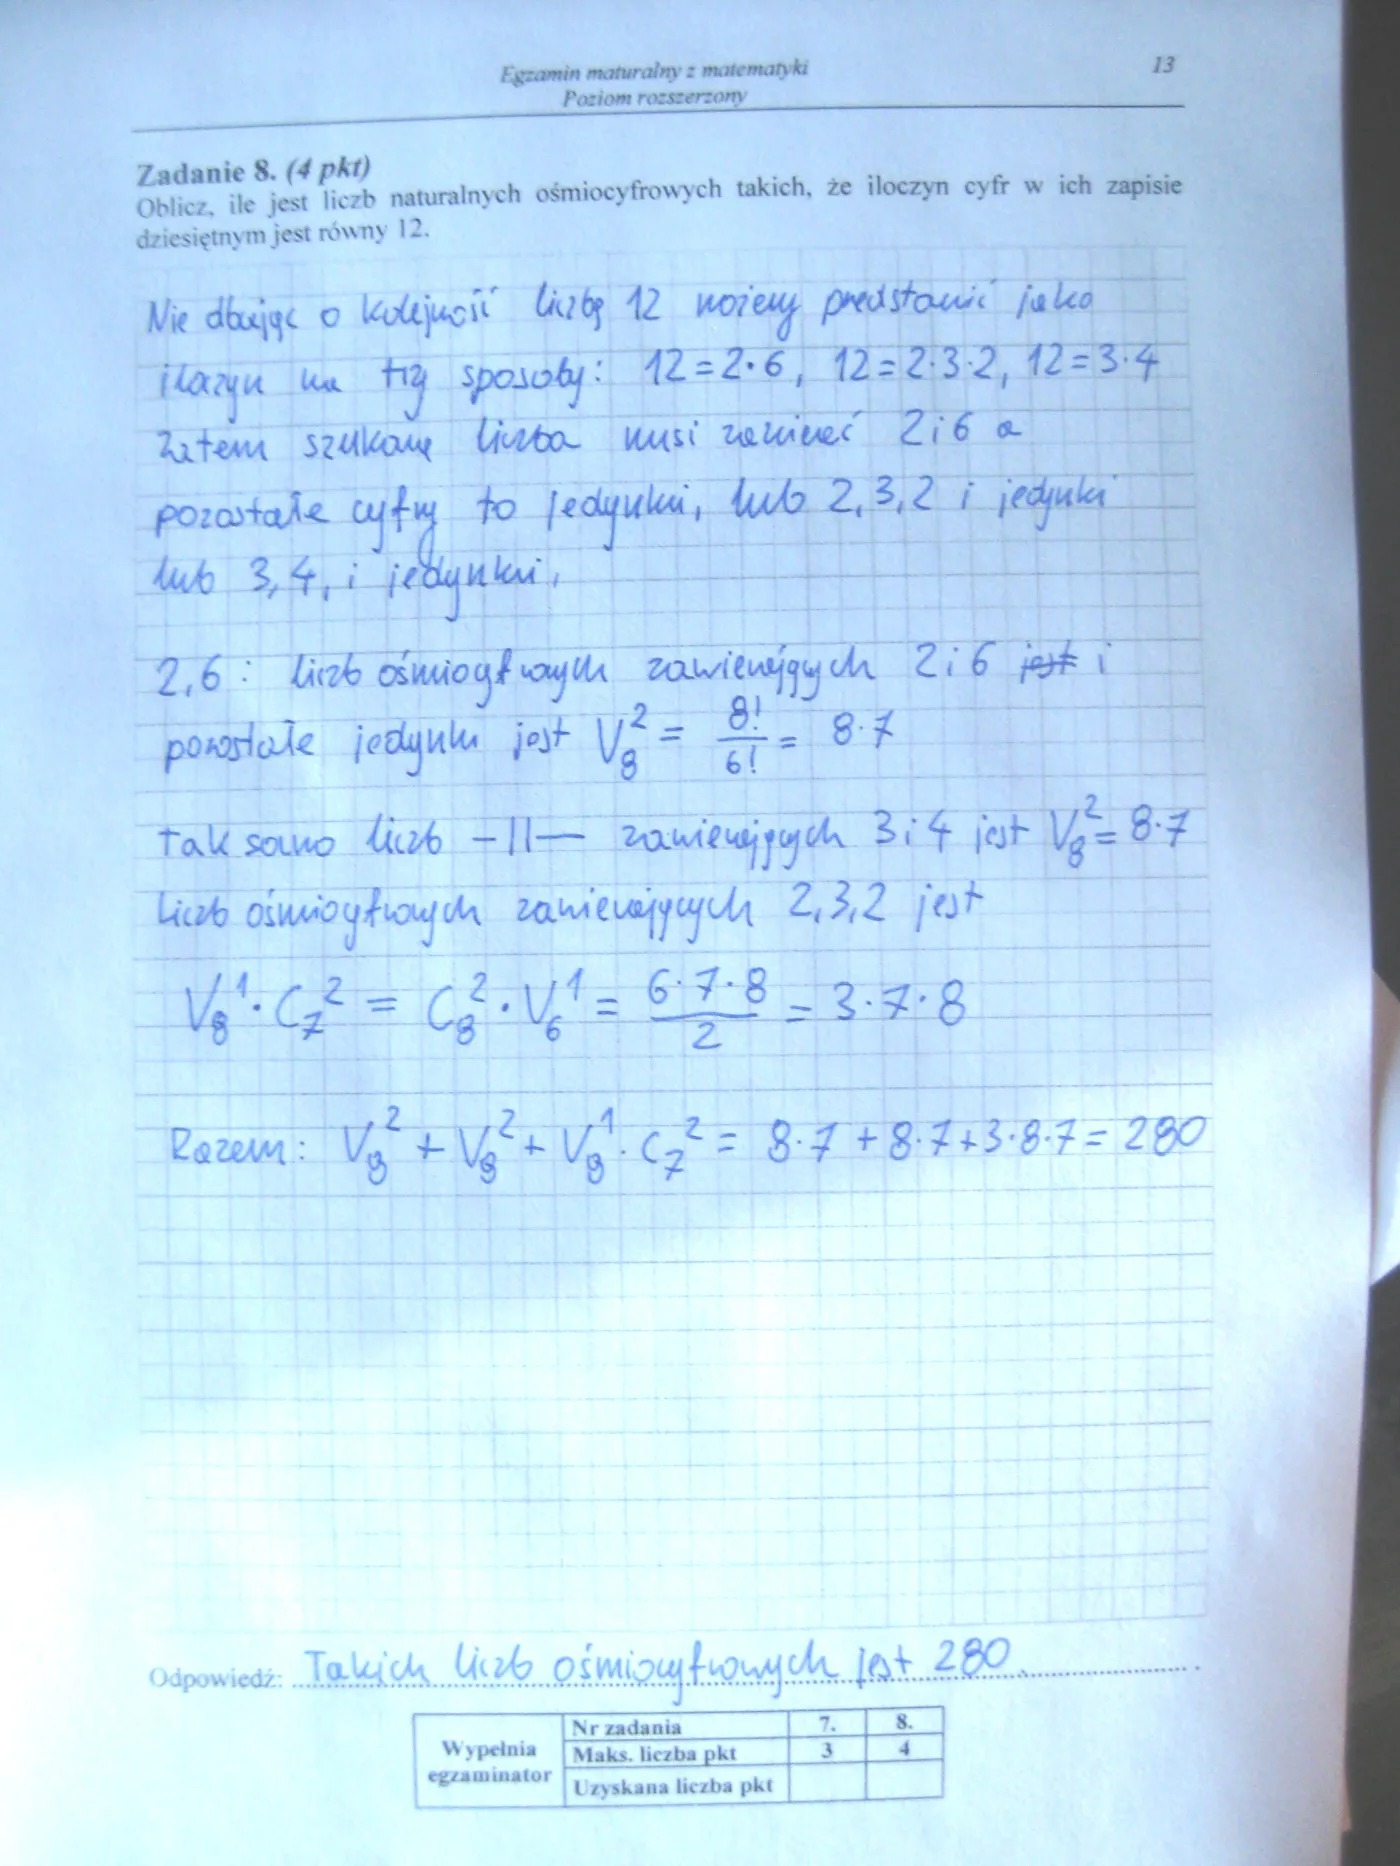 Egzamin maturalny z matematyki
Poziom rozszerzony
13
Zadanie 8. (4 pkt)
Oblicz, ile jest liczb naturalnych ośmiocyfrowych takich, że iloczyn cyfr w ich zapisie
dziesiętnym jest równy 12.
Nie dbając o kolejność liczbę 12 możemy przedstawić jako
iloczyn na trzy sposoby: 12 = 2·6, 12 = 2·3·2, 12 = 3·4
Zatem szukana liczba musi zawierać 2 i 6 a
pozostałe cyfry to jedynki, lub 2,3,2 i jedynki
lub 3,4, i jedynki,
2,6 : liczb ośmiocyfrowych zawierających 2 i 6 jest i
pozostałe jedynki jest V₈² = 8!/6! = 8·7
Tak samo liczb -||- zawierających 3 i 4 jest V₈² = 8·7
Liczb ośmiocyfrowych zawierających 2,3,2 jest
V₈¹·C₇² = C₈²·V₆¹ = 6·7·8/2 = 3·7·8
Razem: V₈² + V₈² + V₈¹·C₇² = 8·7 + 8·7 + 3·8·7 = 280
Odpowiedź: Takich liczb ośmiocyfrowych jest 280.
Wypełnia egzaminator
Nr zadania 7. 8.
Maks. liczba pkt 3 4
Uzyskana liczba pkt